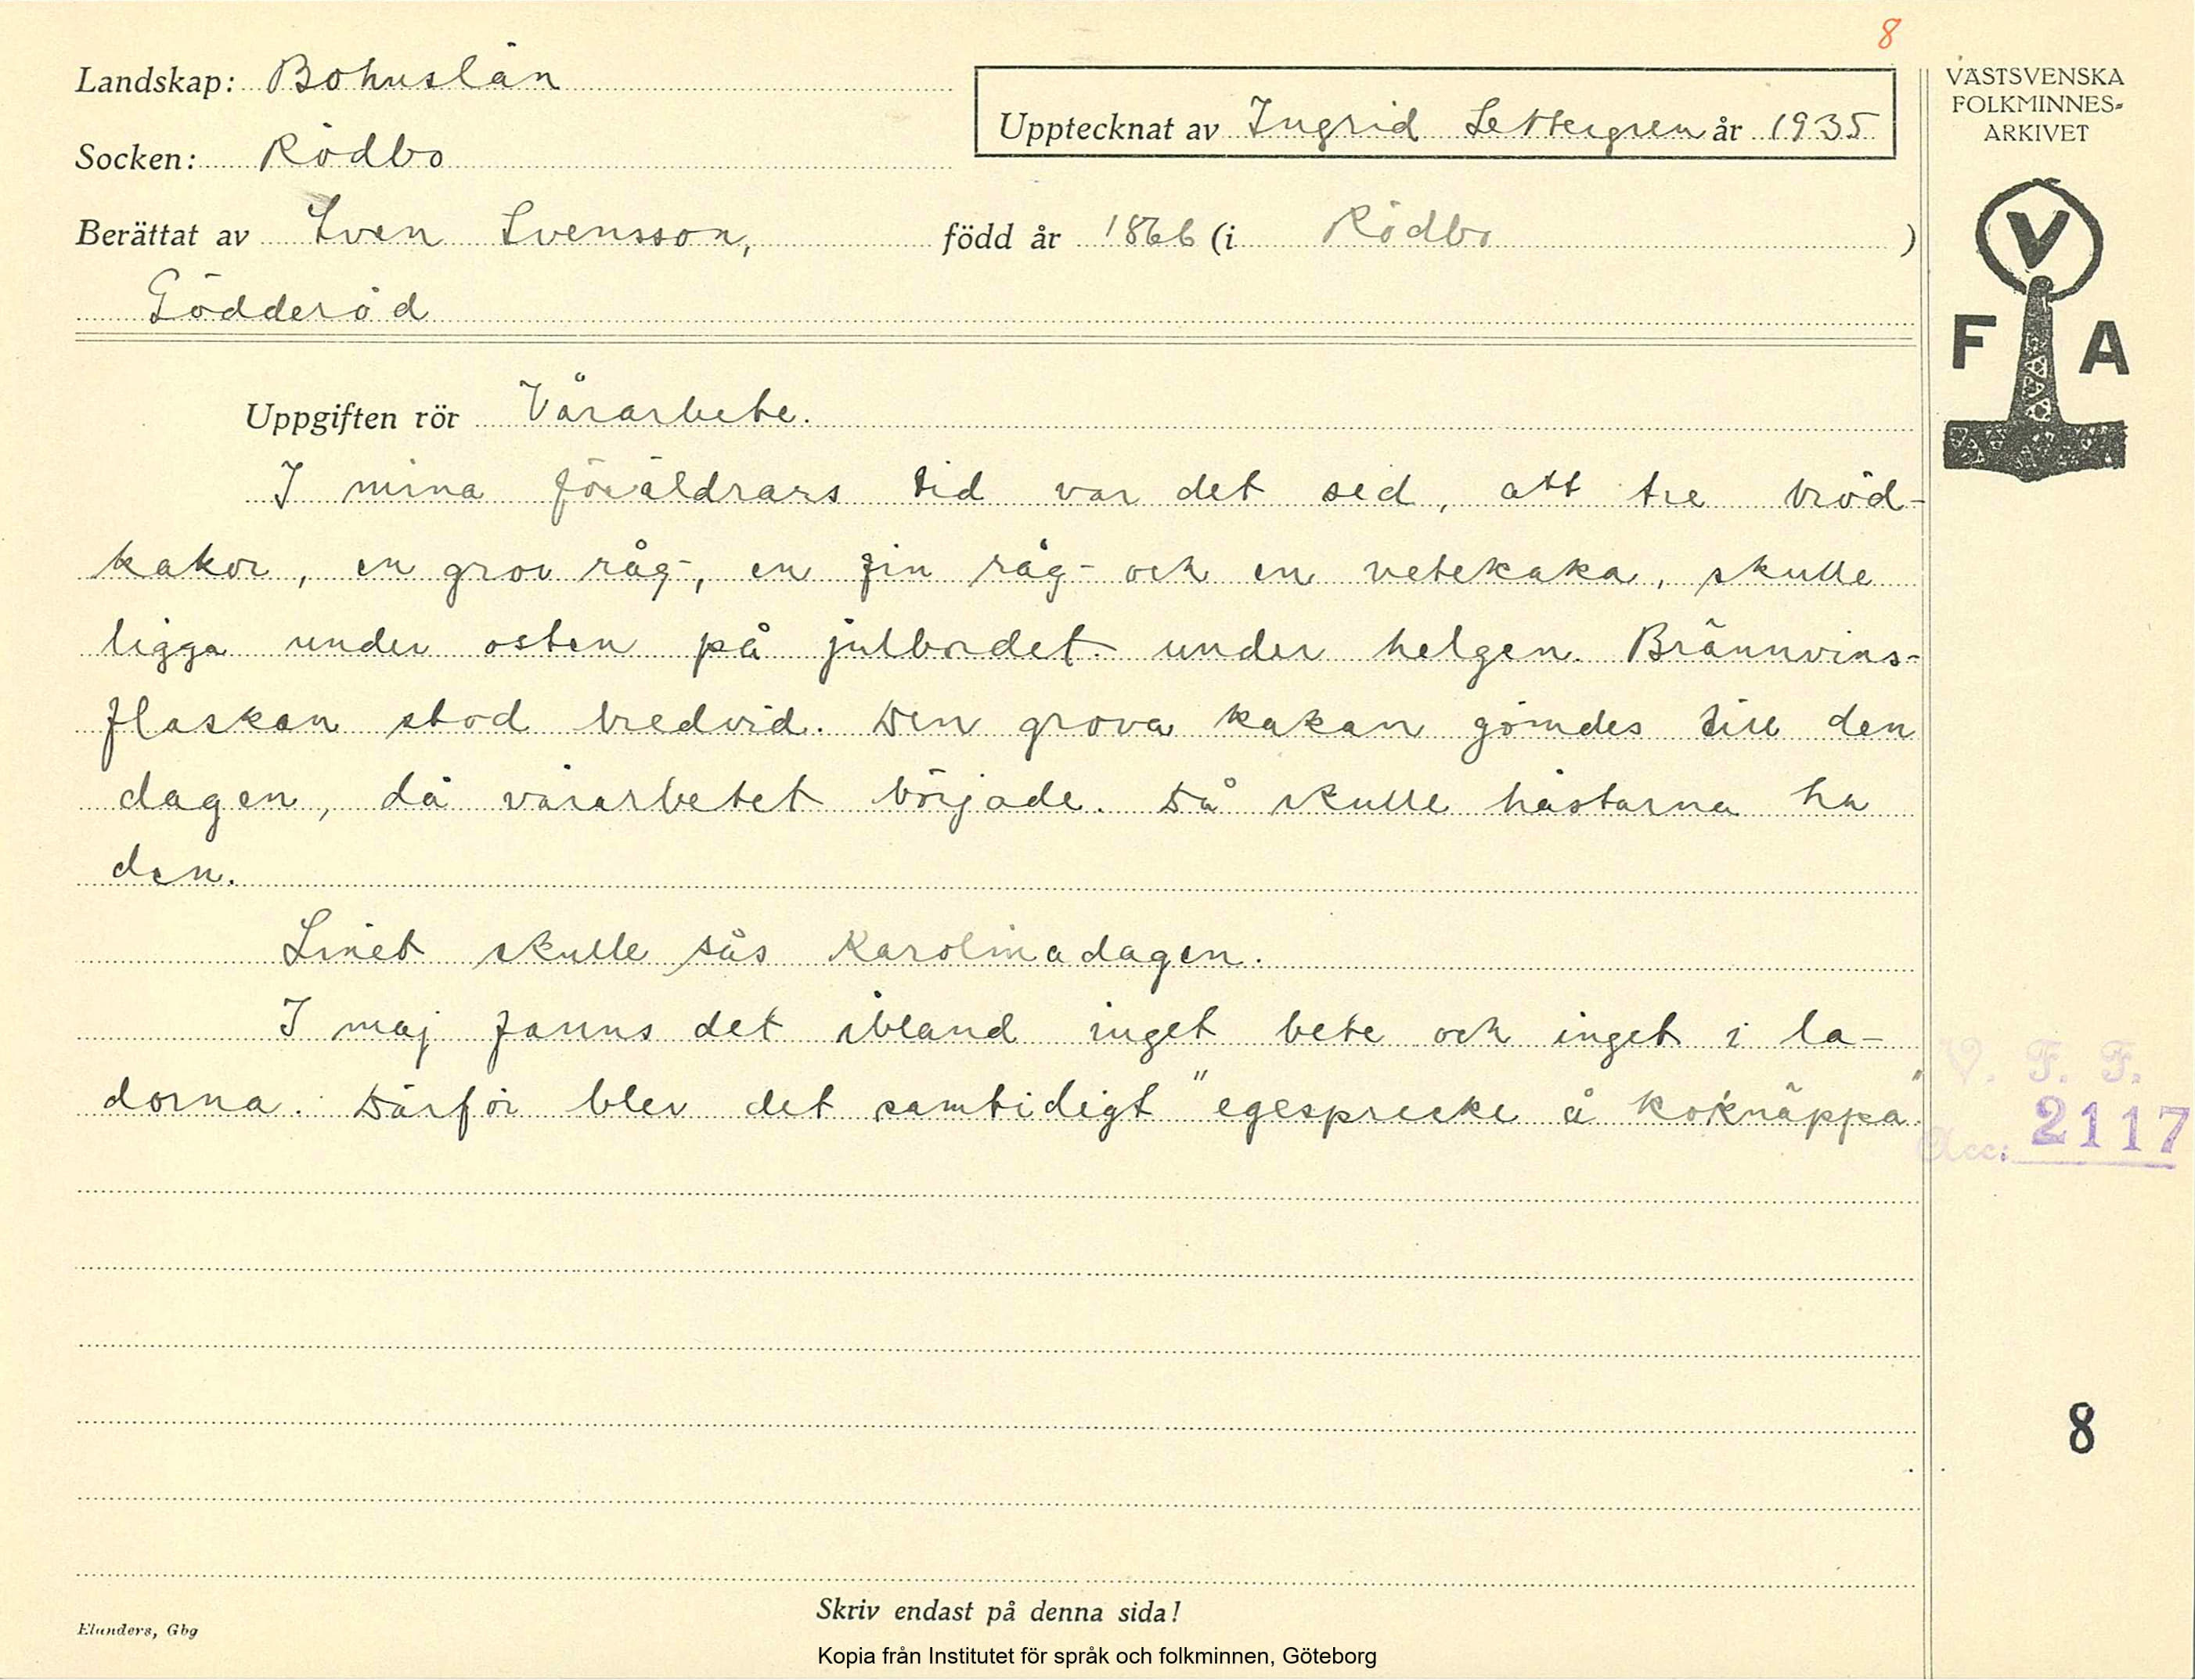 8
Landskap: Bohuslän
Socken: Rödbo
Upptecknat av Ingrid Settergren år 1935
Berättat av Sven Svensson, född år 1866 (i Rödbo )
Gödderöd
VÄSTSVENSKA
FOLKMINNES-
ARKIVET
V
F A
Uppgiften rör Vårarbete.
I mina föräldrars tid var det sed, att tre bröd-
kakor, en grov råg-, en fin råg- och en vetekaka, skulle
ligga under osten på julbordet under helgen. Brännvins-
flaskan stod bredvid. Den grova kakan gömdes till den
dagen, då vårarbetet började. Då skulle hästarna ha
den.
Linet skulle sås Karolinadagen.
I maj fanns det ibland inget bete och inget i la-
dorna. Därför blev det samtidigt "egesprecke å koknäppa".
V. F. F.
Acc: 2117
8
Skriv endast på denna sida!
Elanders, Gbg
Kopia från Institutet för språk och folkminnen, Göteborg